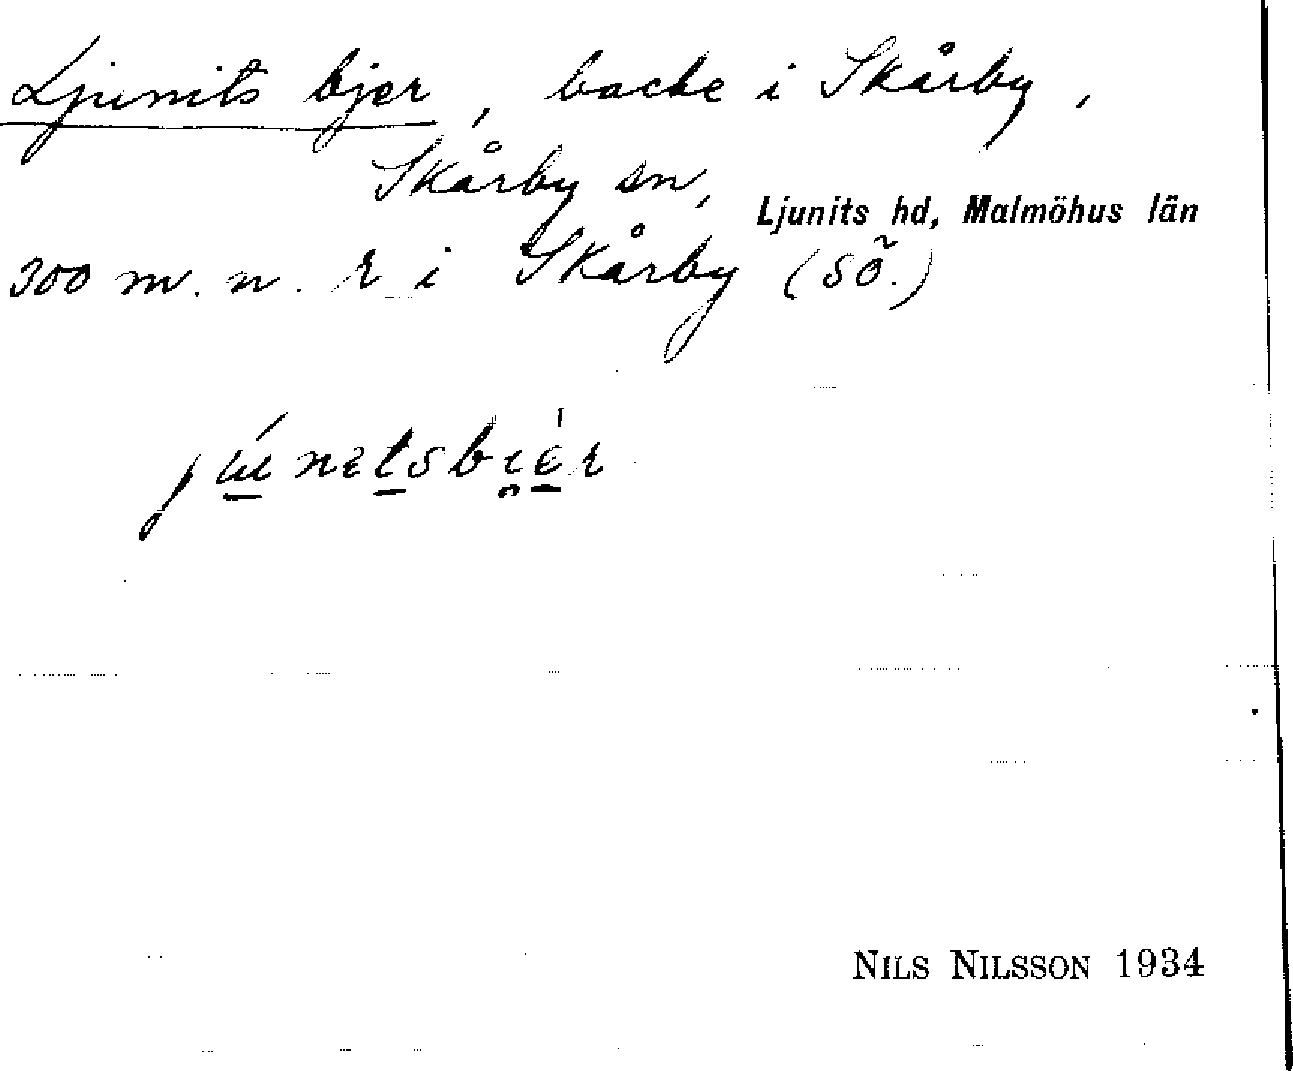 Ljunits bjer, backe i Skårby,
Skårby sn, Ljunits hd, Malmöhus län
300 m. n. k i Skårby (sõ.)
NILS NILSSON 1934